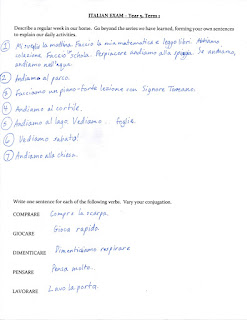 ITALIAN EXAM – Year 9, Term 1
Describe a regular week in our home. Go beyond the series we have learned, forming your own sentences
to explain our daily activities.
① Mi sveglo la mattina. Faccio la mia matematica e leggo libri. Abbiamo
colazione. Faccio schola. Perpiacere andiamo alla spiaggia. Se andiamo,
andiamo nell'agua.
② Andiamo al parco.
③ Facciamo un piano-forte lezione con Signore Tomano.
④ Andiamo al cortile.
⑤ Andiamo al lago. Vediamo foglie.
⑥ Vediamo sabato!
⑦ Andiamo alla chiesa.
Write one sentence for each of the following verbs. Vary your conjugation.
COMPRARE Compro la scarpa.
GIOCARE Gioca rapido.
DIMENTICARE Dimentichiamo respirare
PENSARE Pensa molto.
LAVORARE Lavo la porta.